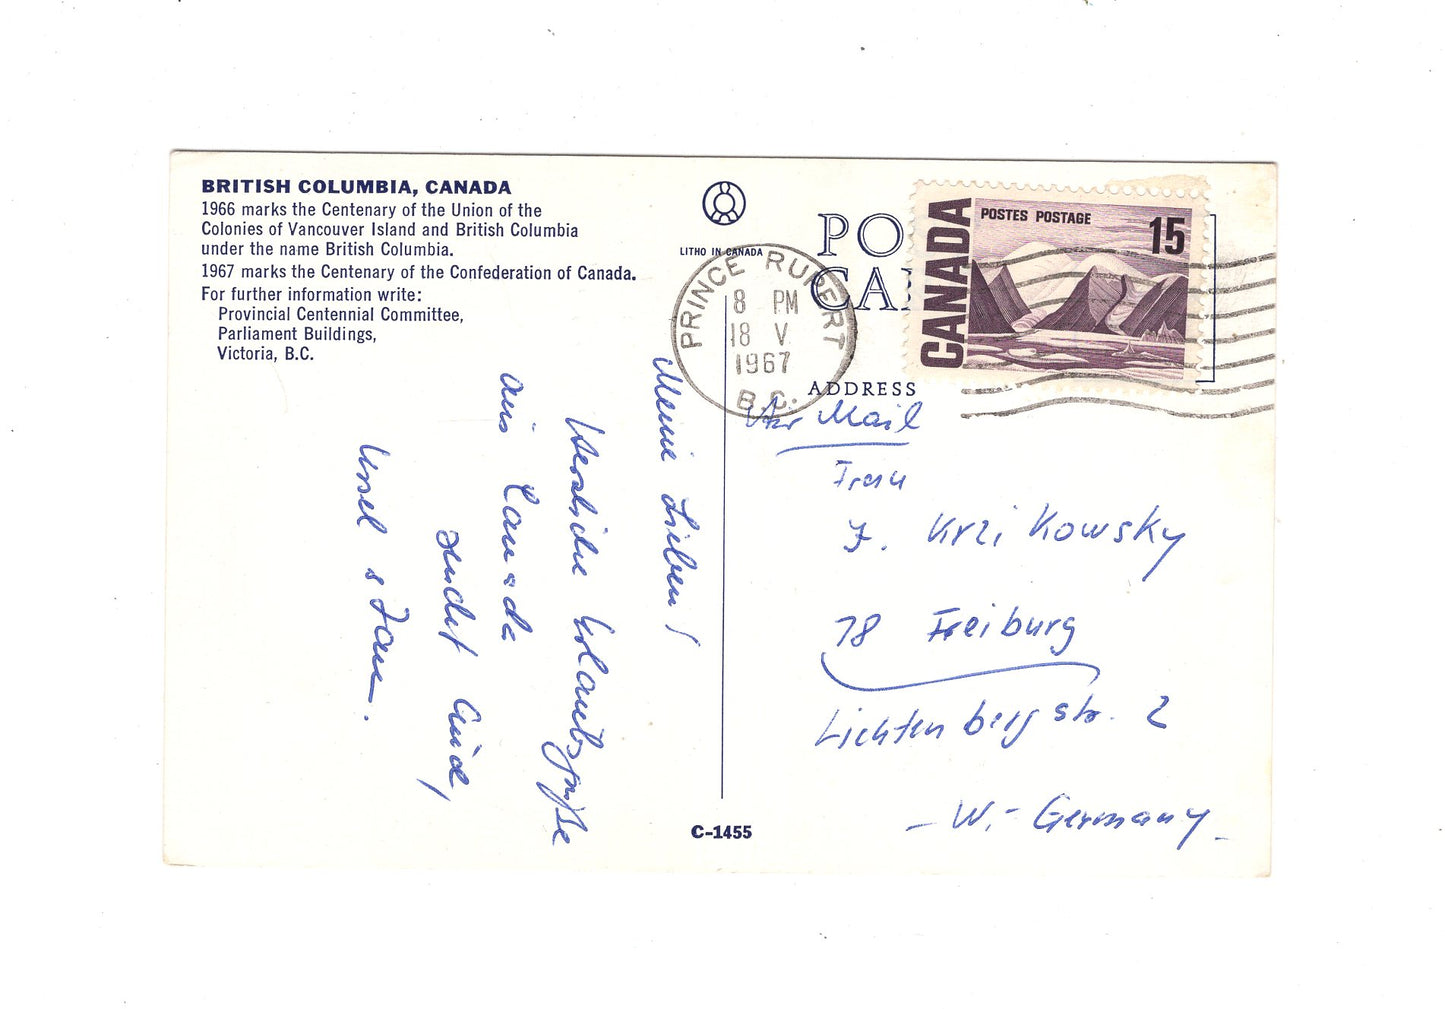 BRITISH COLUMBIA, CANADA
1966 marks the Centenary of the Union of the
Colonies of Vancouver Island and British Columbia
under the name British Columbia.
1967 marks the Centenary of the Confederation of Canada.
For further information write:
Provincial Centennial Committee,
Parliament Buildings,
Victoria, B.C.
LITHO IN CANADA
PO
CA
ADDRESS
PRINCE RUPERT
8 PM
18 V
1967
B.C.
CANADA
POSTES POSTAGE
15
Meine Lieben!
Herzliche Urlaubsgrüße
aus Canada
sendet Euch,
Ursel
Air Mail
Frau
F. Krzikowsky
78 Freiburg
Lichtenbergstr. 2
- W.- Germany -
C-1455